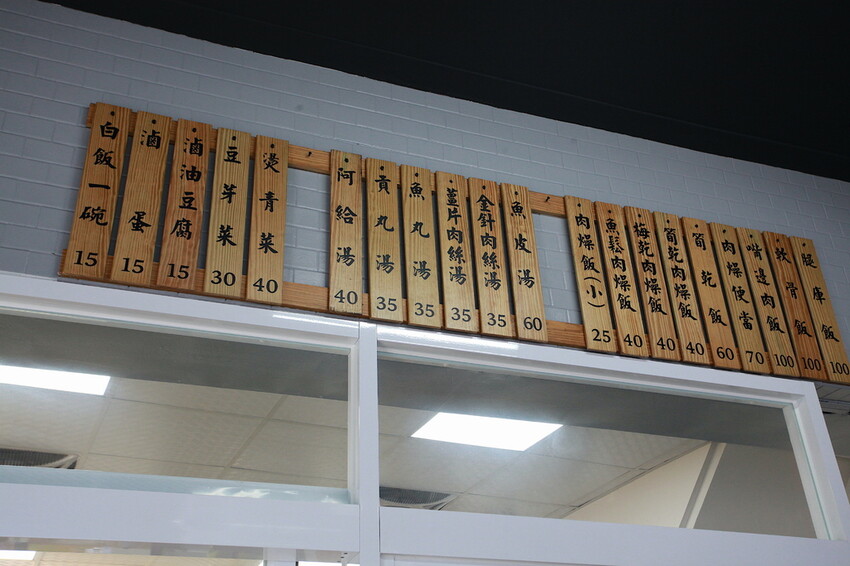 腿庫飯 100
軟骨飯 100
嘴邊肉飯 100
肉燥便當 70
筍乾飯 60
筍乾肉燥飯 40
梅乾肉燥飯 40
魚鬆肉燥飯 40
肉燥飯(小) 25
魚皮湯 60
金針肉絲湯 35
薑片肉絲湯 35
魚丸湯 35
貢丸湯 35
阿給湯 40
燙青菜 40
豆芽菜 30
滷油豆腐 15
滷蛋 15
白飯一碗 15